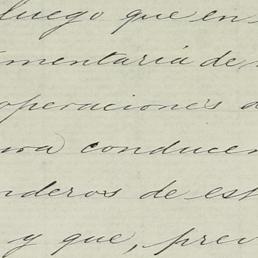 luego que en
mentaria de
operaciones d
ra conducen
nderos de est
y que, prev